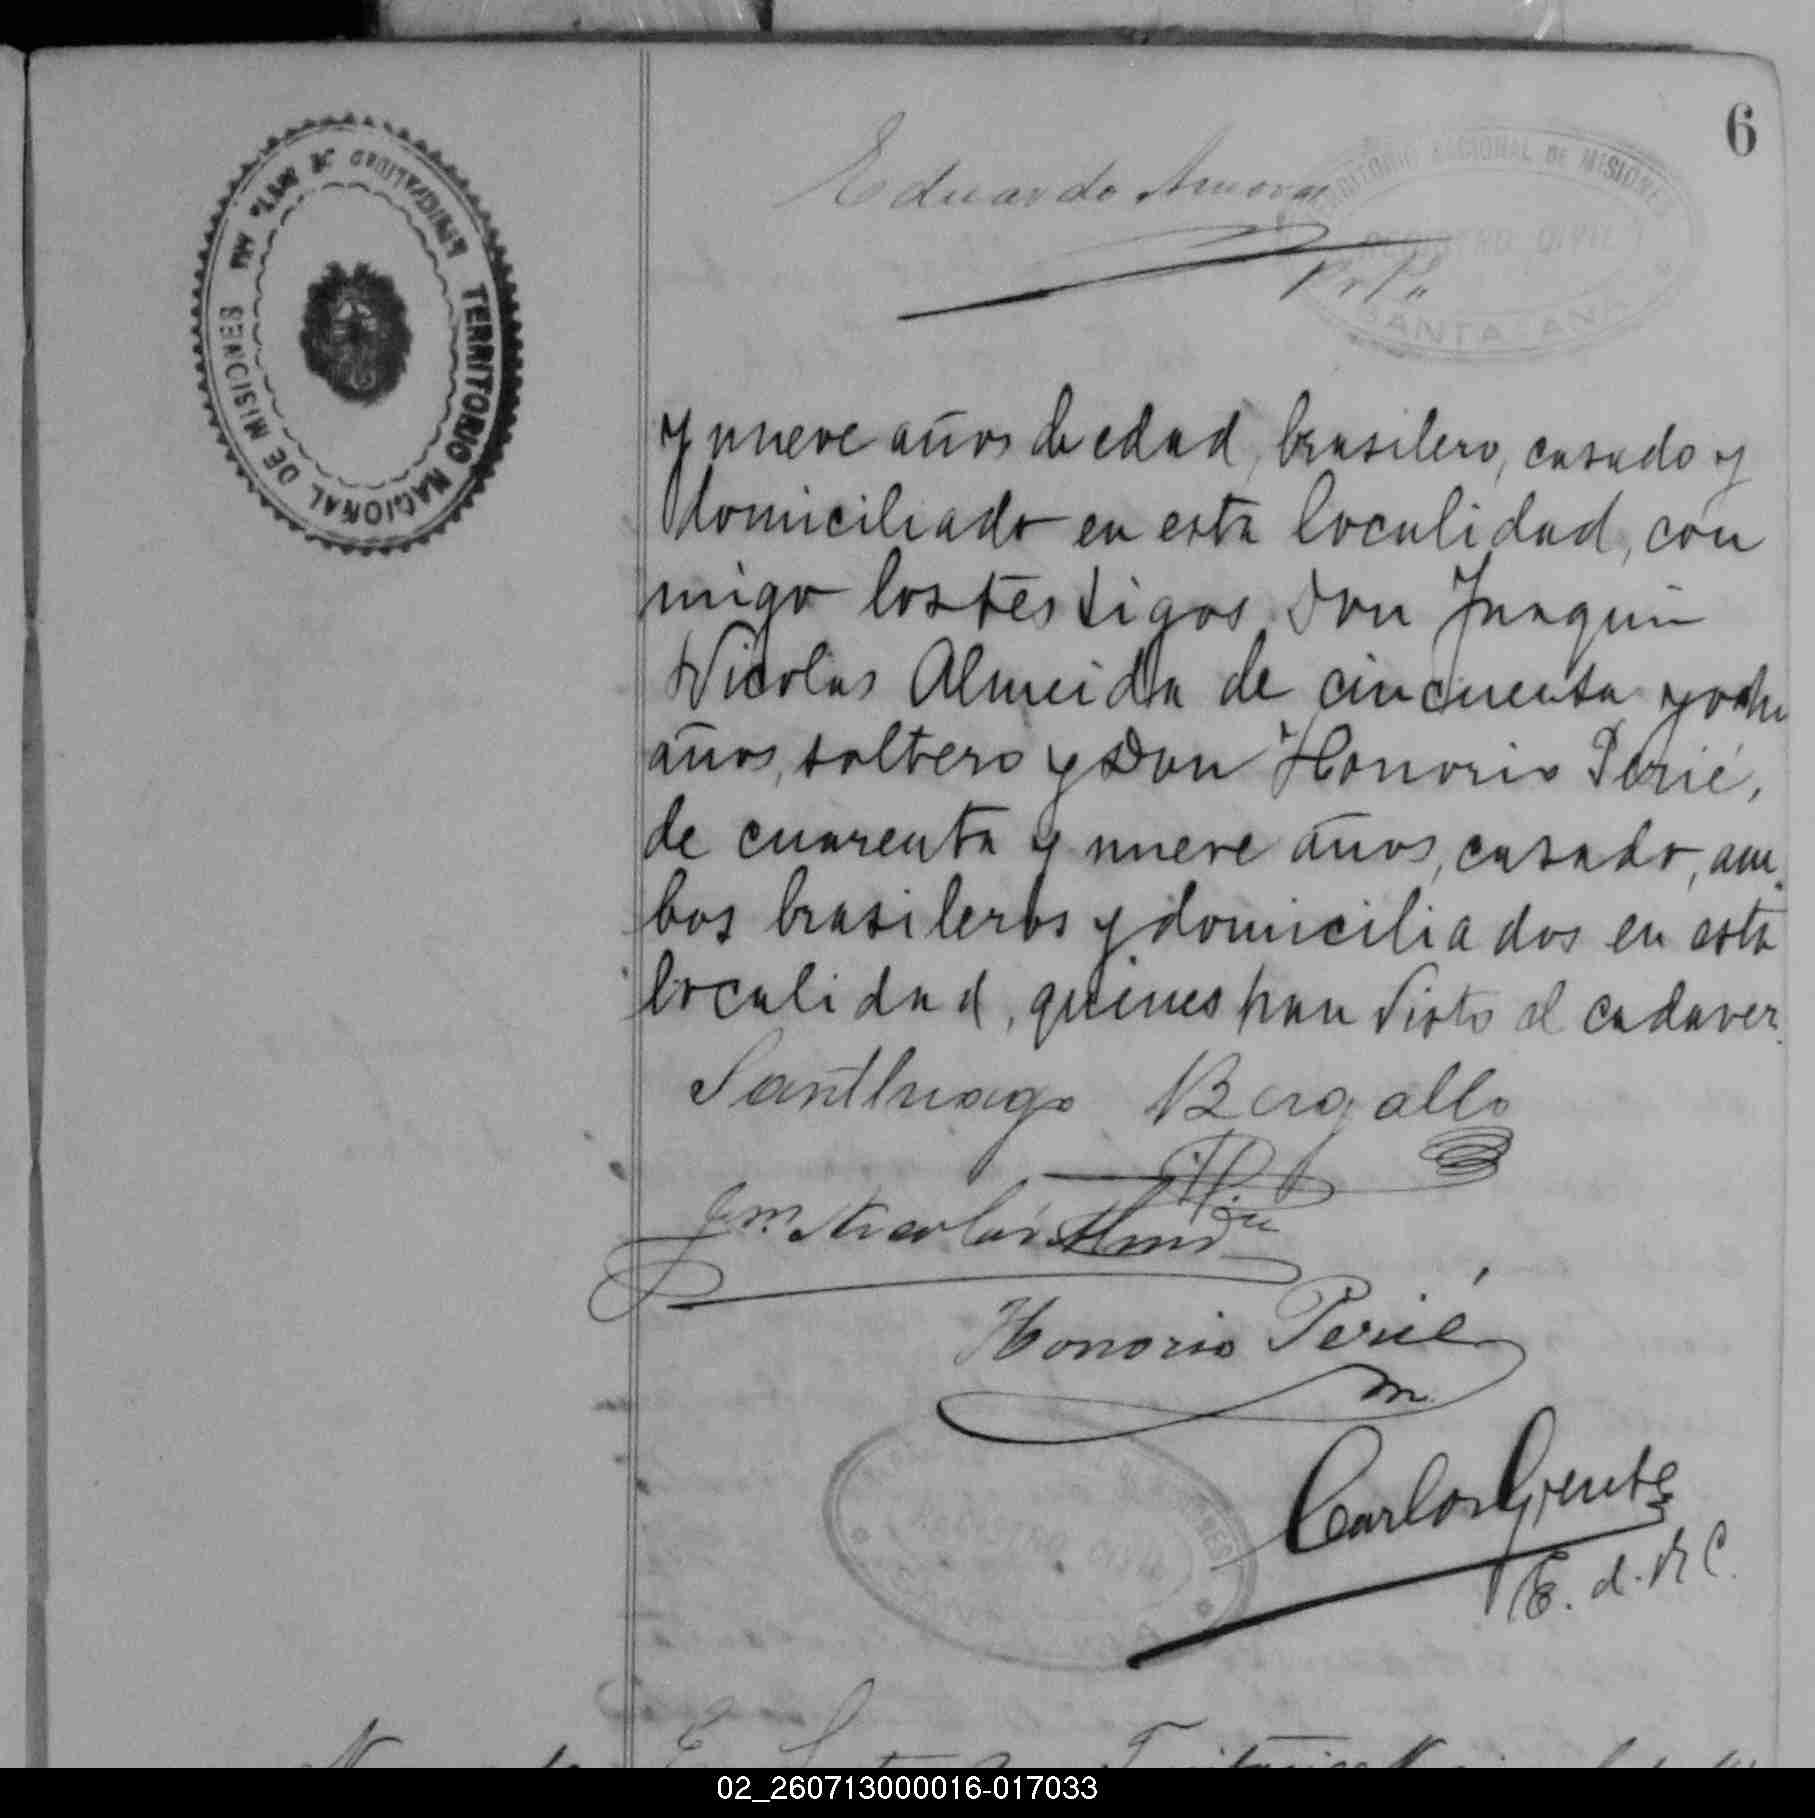 6
Eduardo
TERRITORIO NACIONAL DE MISIONES
REGISTRO CIVIL
SANTA ANA
TERRITORIO NACIONAL DE MISIONES
y nueve años de edad, brasilero, casado y
domiciliado en esta localidad, con
migo los testigos Don Juaquin
Nicolas Almeida de cincuenta y ocho
años, soltero y Don Honorio Perié,
de cuarenta y nueve años, casado, am
bos brasileros y domiciliados en esta
localidad, quienes han visto el cadaver.
Santhiago Bergallo
Jm. Nicolás Almda
Honorio Perié
Carlos Gente
E. d. R C.
REGISTRO CIVIL
02_260713000016-017033